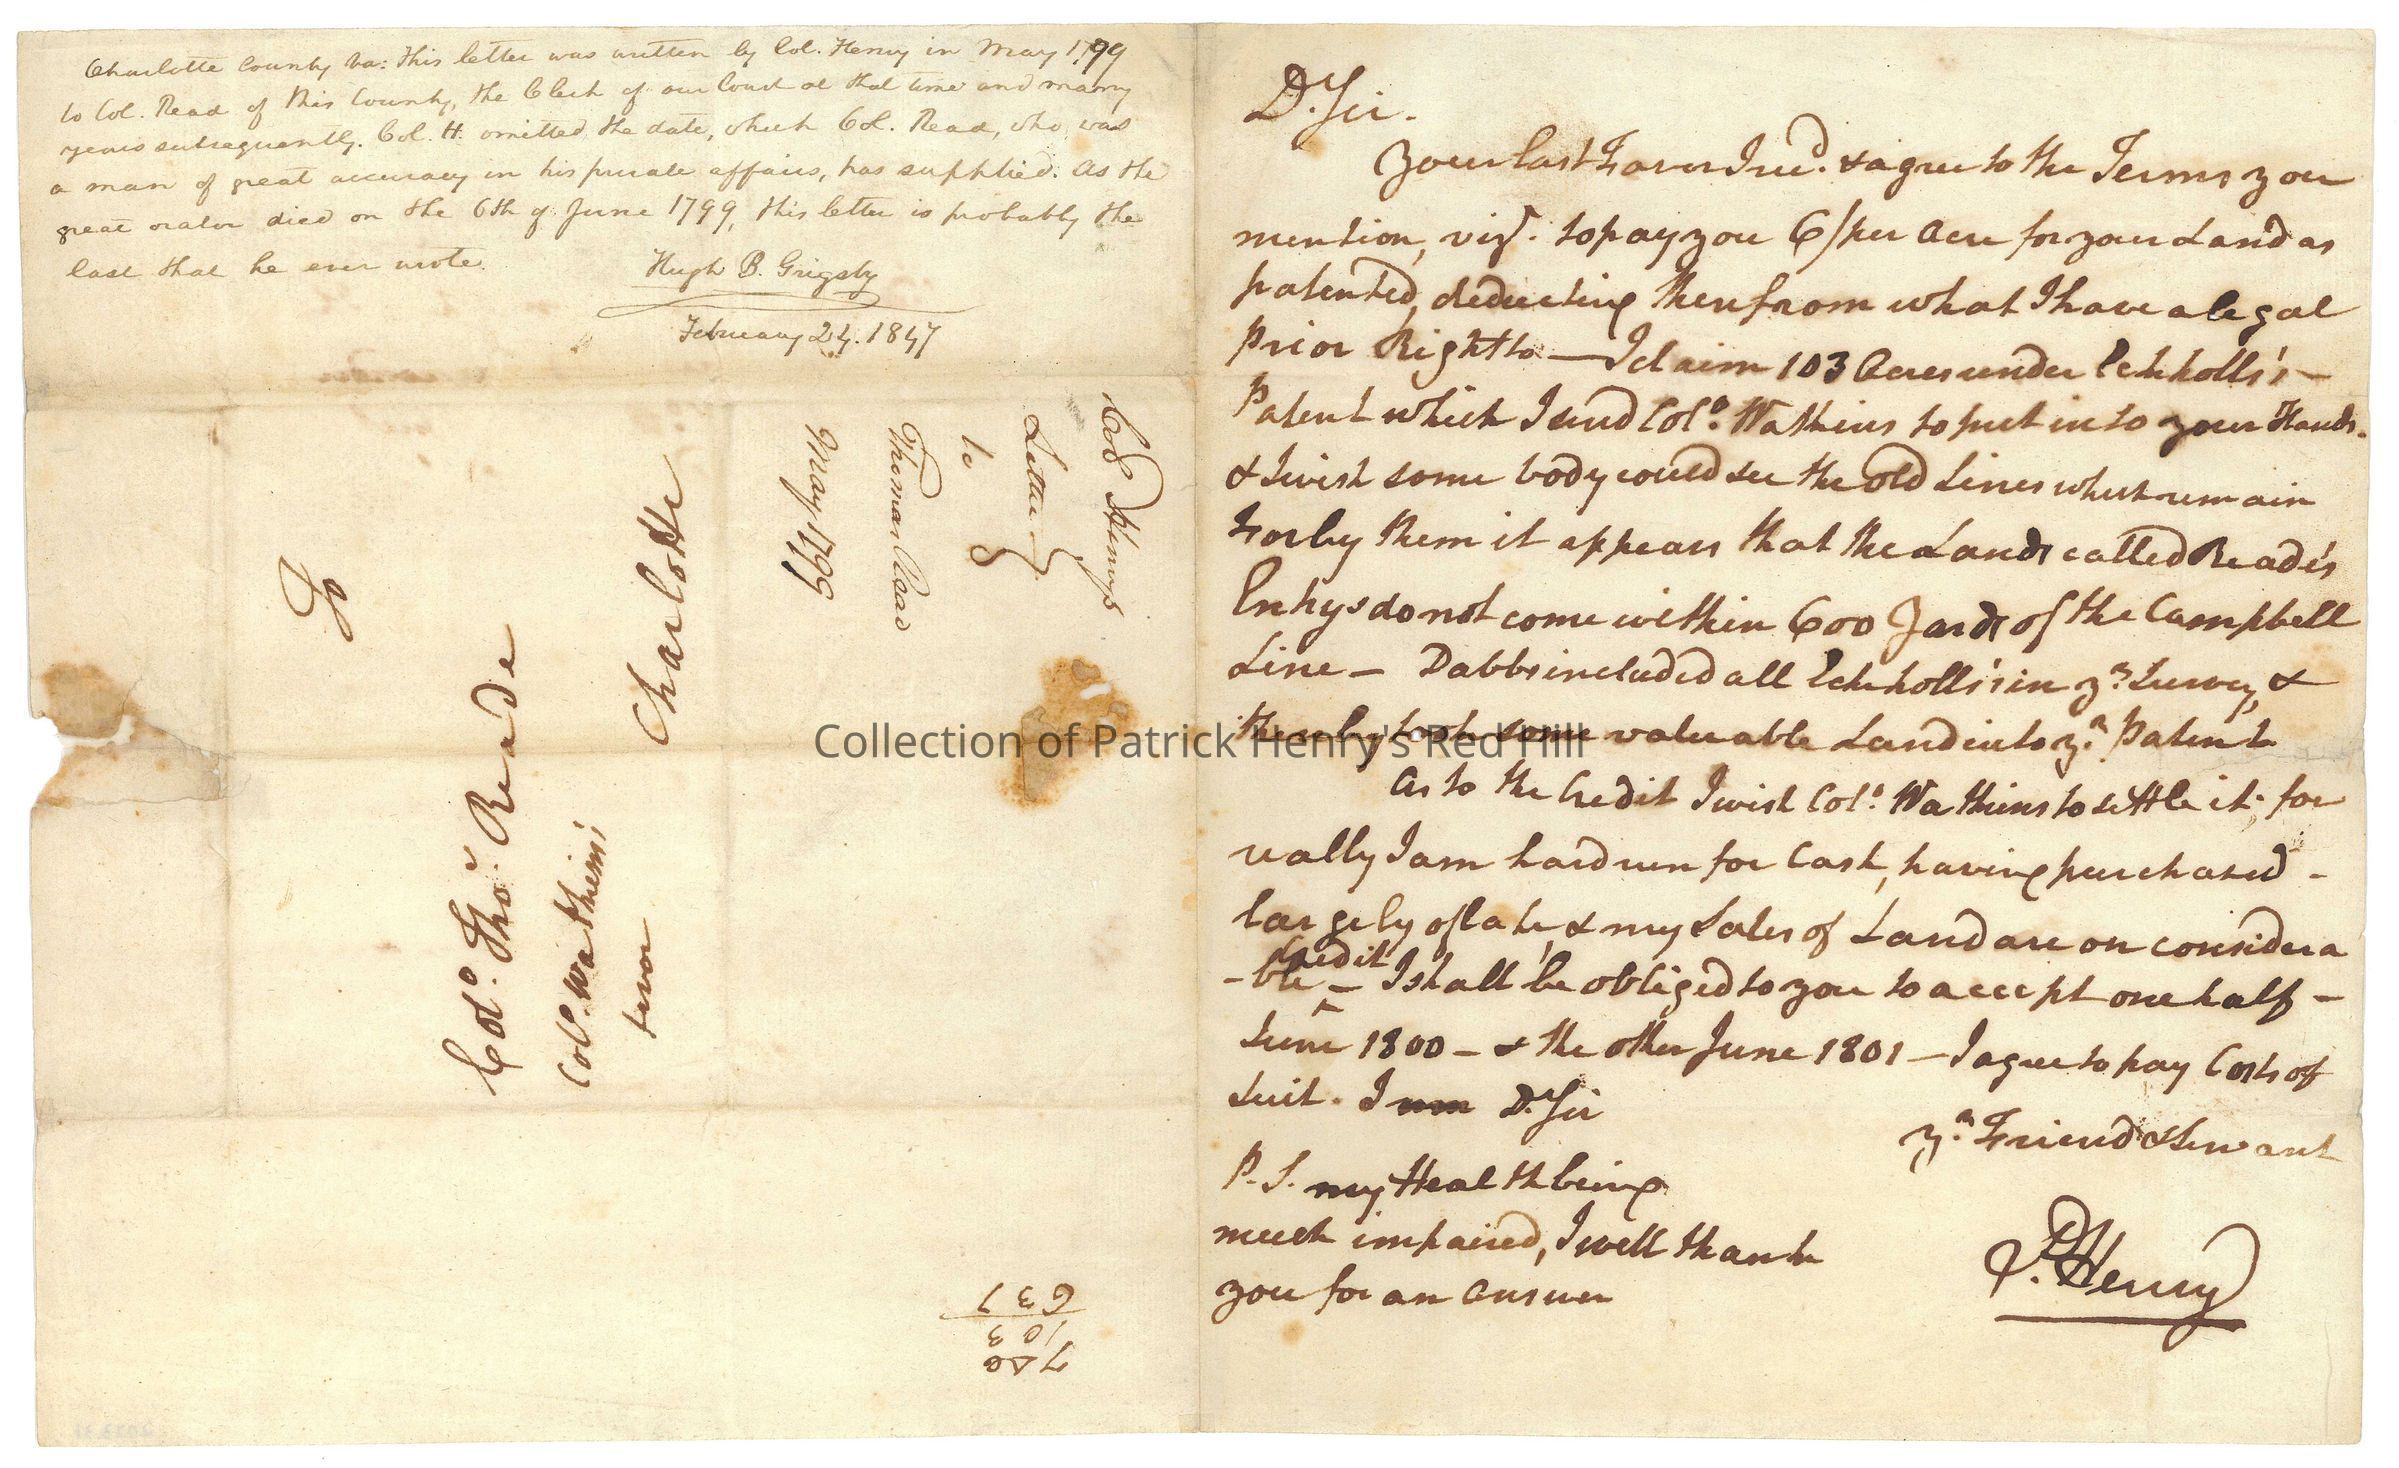 Charlotte County Va: This letter was written by Col. Henry in May 1799
to Col. Read of this County, the Clerk of our Court at that time and many
years subsequently. Col. H. omitted the date, which Col. Read, who was
a man of great accuracy in his private affairs, has supplied. As the
great orator died on the 6th of June 1799, this letter is probably the
last that he ever wrote.
Hugh B. Grigsby
February 24. 1847
Letter
to
Thomas Read
May 1799
To
Colo. Thos. Reade
Charlotte
Colo. Watkins's
favor
740
103
637
D. Sir.
Your last Favor I recd. & agree to the Terms you
mention, vizt. to pay you 6/ per Acre for your Land as
patented, deducting therefrom what I have a legal
Prior Right to — I claim 103 Acres under Echholls's –
Patent which I send Colo. Watkins to put into your Hands.
& I wish some body could see the old Lines which remain
For by them it appears that the Lands called Read's
Entrys do not come within 600 Yards of the Campbell
Line – Dabbs included all Echholls's in yr. Survey, &
thereby took some valuable Land into yr. Patent
As to the Credit I wish Colo. Watkins to settle it; for
really I am hard run for Cash, having purchased –
largely of late, & my Sales of Land are on considera
-ble Credit – I shall be obliged to you to accept one half –
June 1800 – & the other June 1801 – I agree to pay Costs of
Suit. I am D. Sir
yr. Friend & Servant
P. Henry
P.S. my Health being
much impaired, I will thank
you for an answer
Collection of Patrick Henry's Red Hill